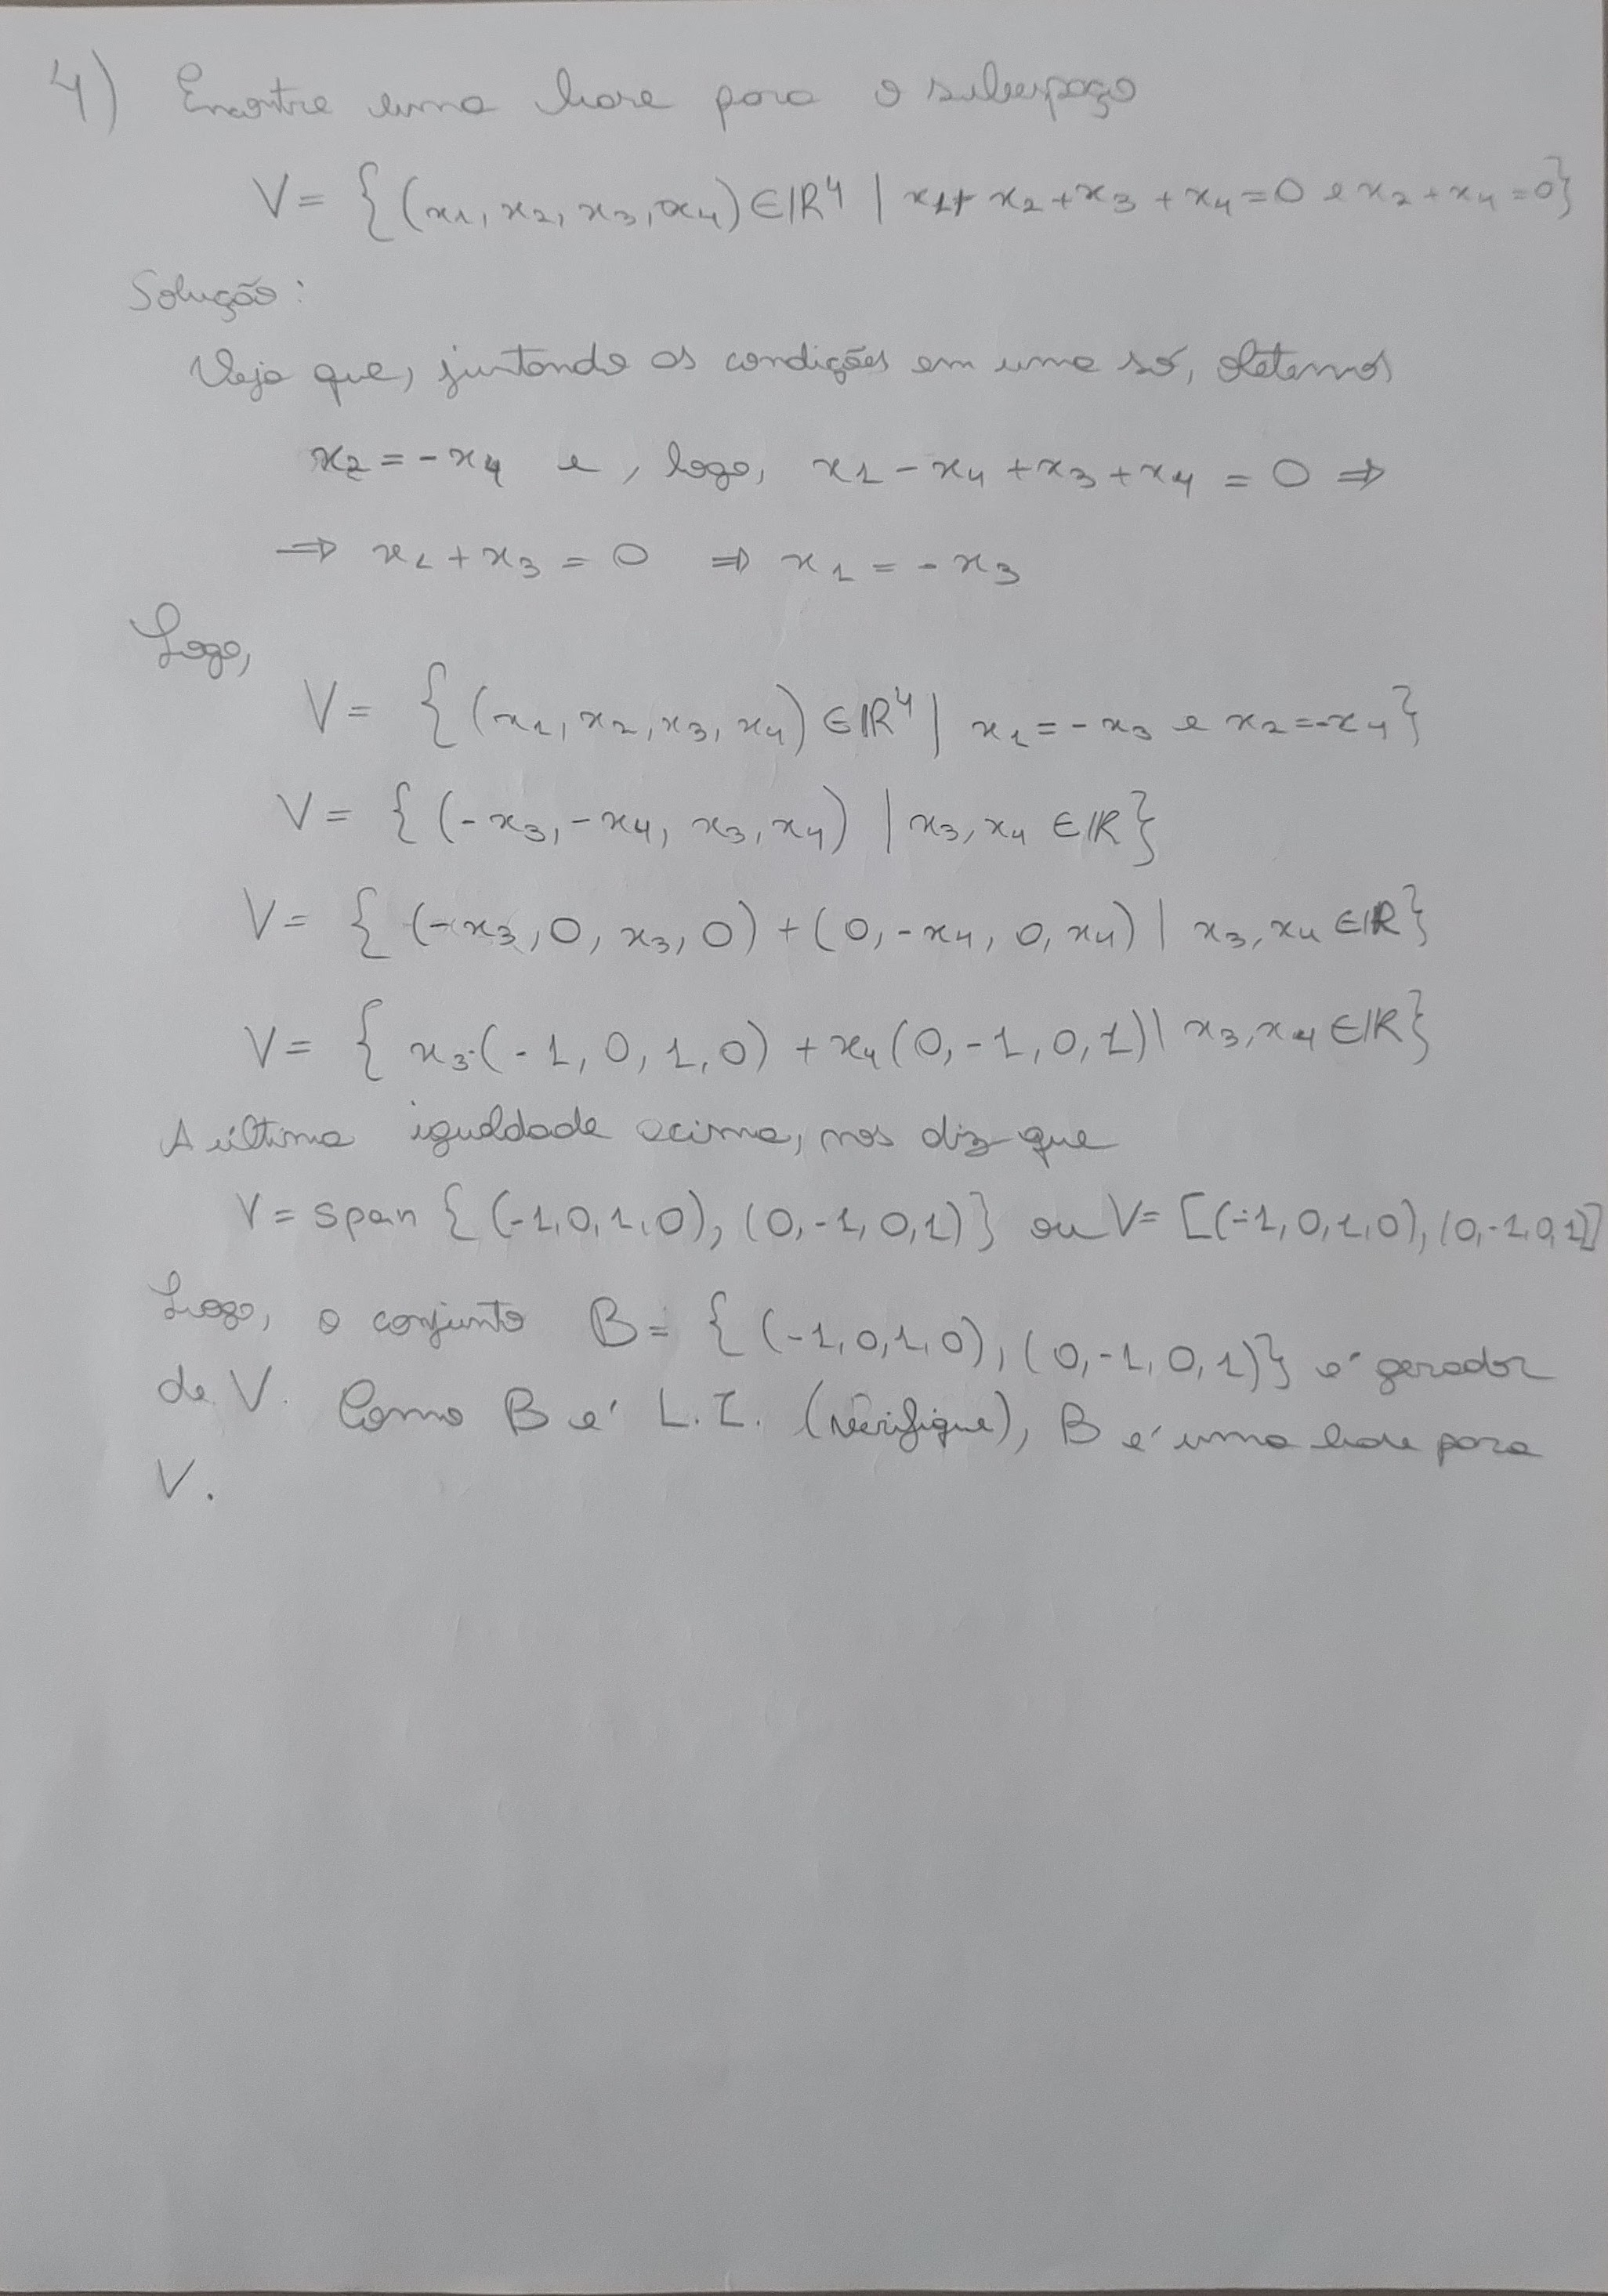 4) Encontre uma base para o subespaço
V = { (x1, x2, x3, x4) ∈ ℝ⁴ | x1 + x2 + x3 + x4 = 0 e x2 + x4 = 0}
Solução:
Veja que, juntando as condições em uma só, obtemos
x2 = - x4 e, logo, x1 - x4 + x3 + x4 = 0 ⇒
⇒ x1 + x3 = 0 ⇒ x1 = - x3
Logo,
V = { (x1, x2, x3, x4) ∈ ℝ⁴ | x1 = - x3 e x2 = - x4 }
V = { (- x3, - x4, x3, x4) | x3, x4 ∈ ℝ}
V = { (- x3, 0, x3, 0) + (0, - x4, 0, x4) | x3, x4 ∈ ℝ}
V = { x3·(-1, 0, 1, 0) + x4 (0, -1, 0, 1) | x3, x4 ∈ ℝ}
A última igualdade acima, nos diz que
V = span { (-1, 0, 1, 0), (0, -1, 0, 1)} ou V = [(-1, 0, 1, 0), (0, -1, 0, 1)]
Logo, o conjunto B = { (-1, 0, 1, 0), (0, -1, 0, 1)} é gerador
de V. Como B é L.I. (verifique), B é uma base para
V.